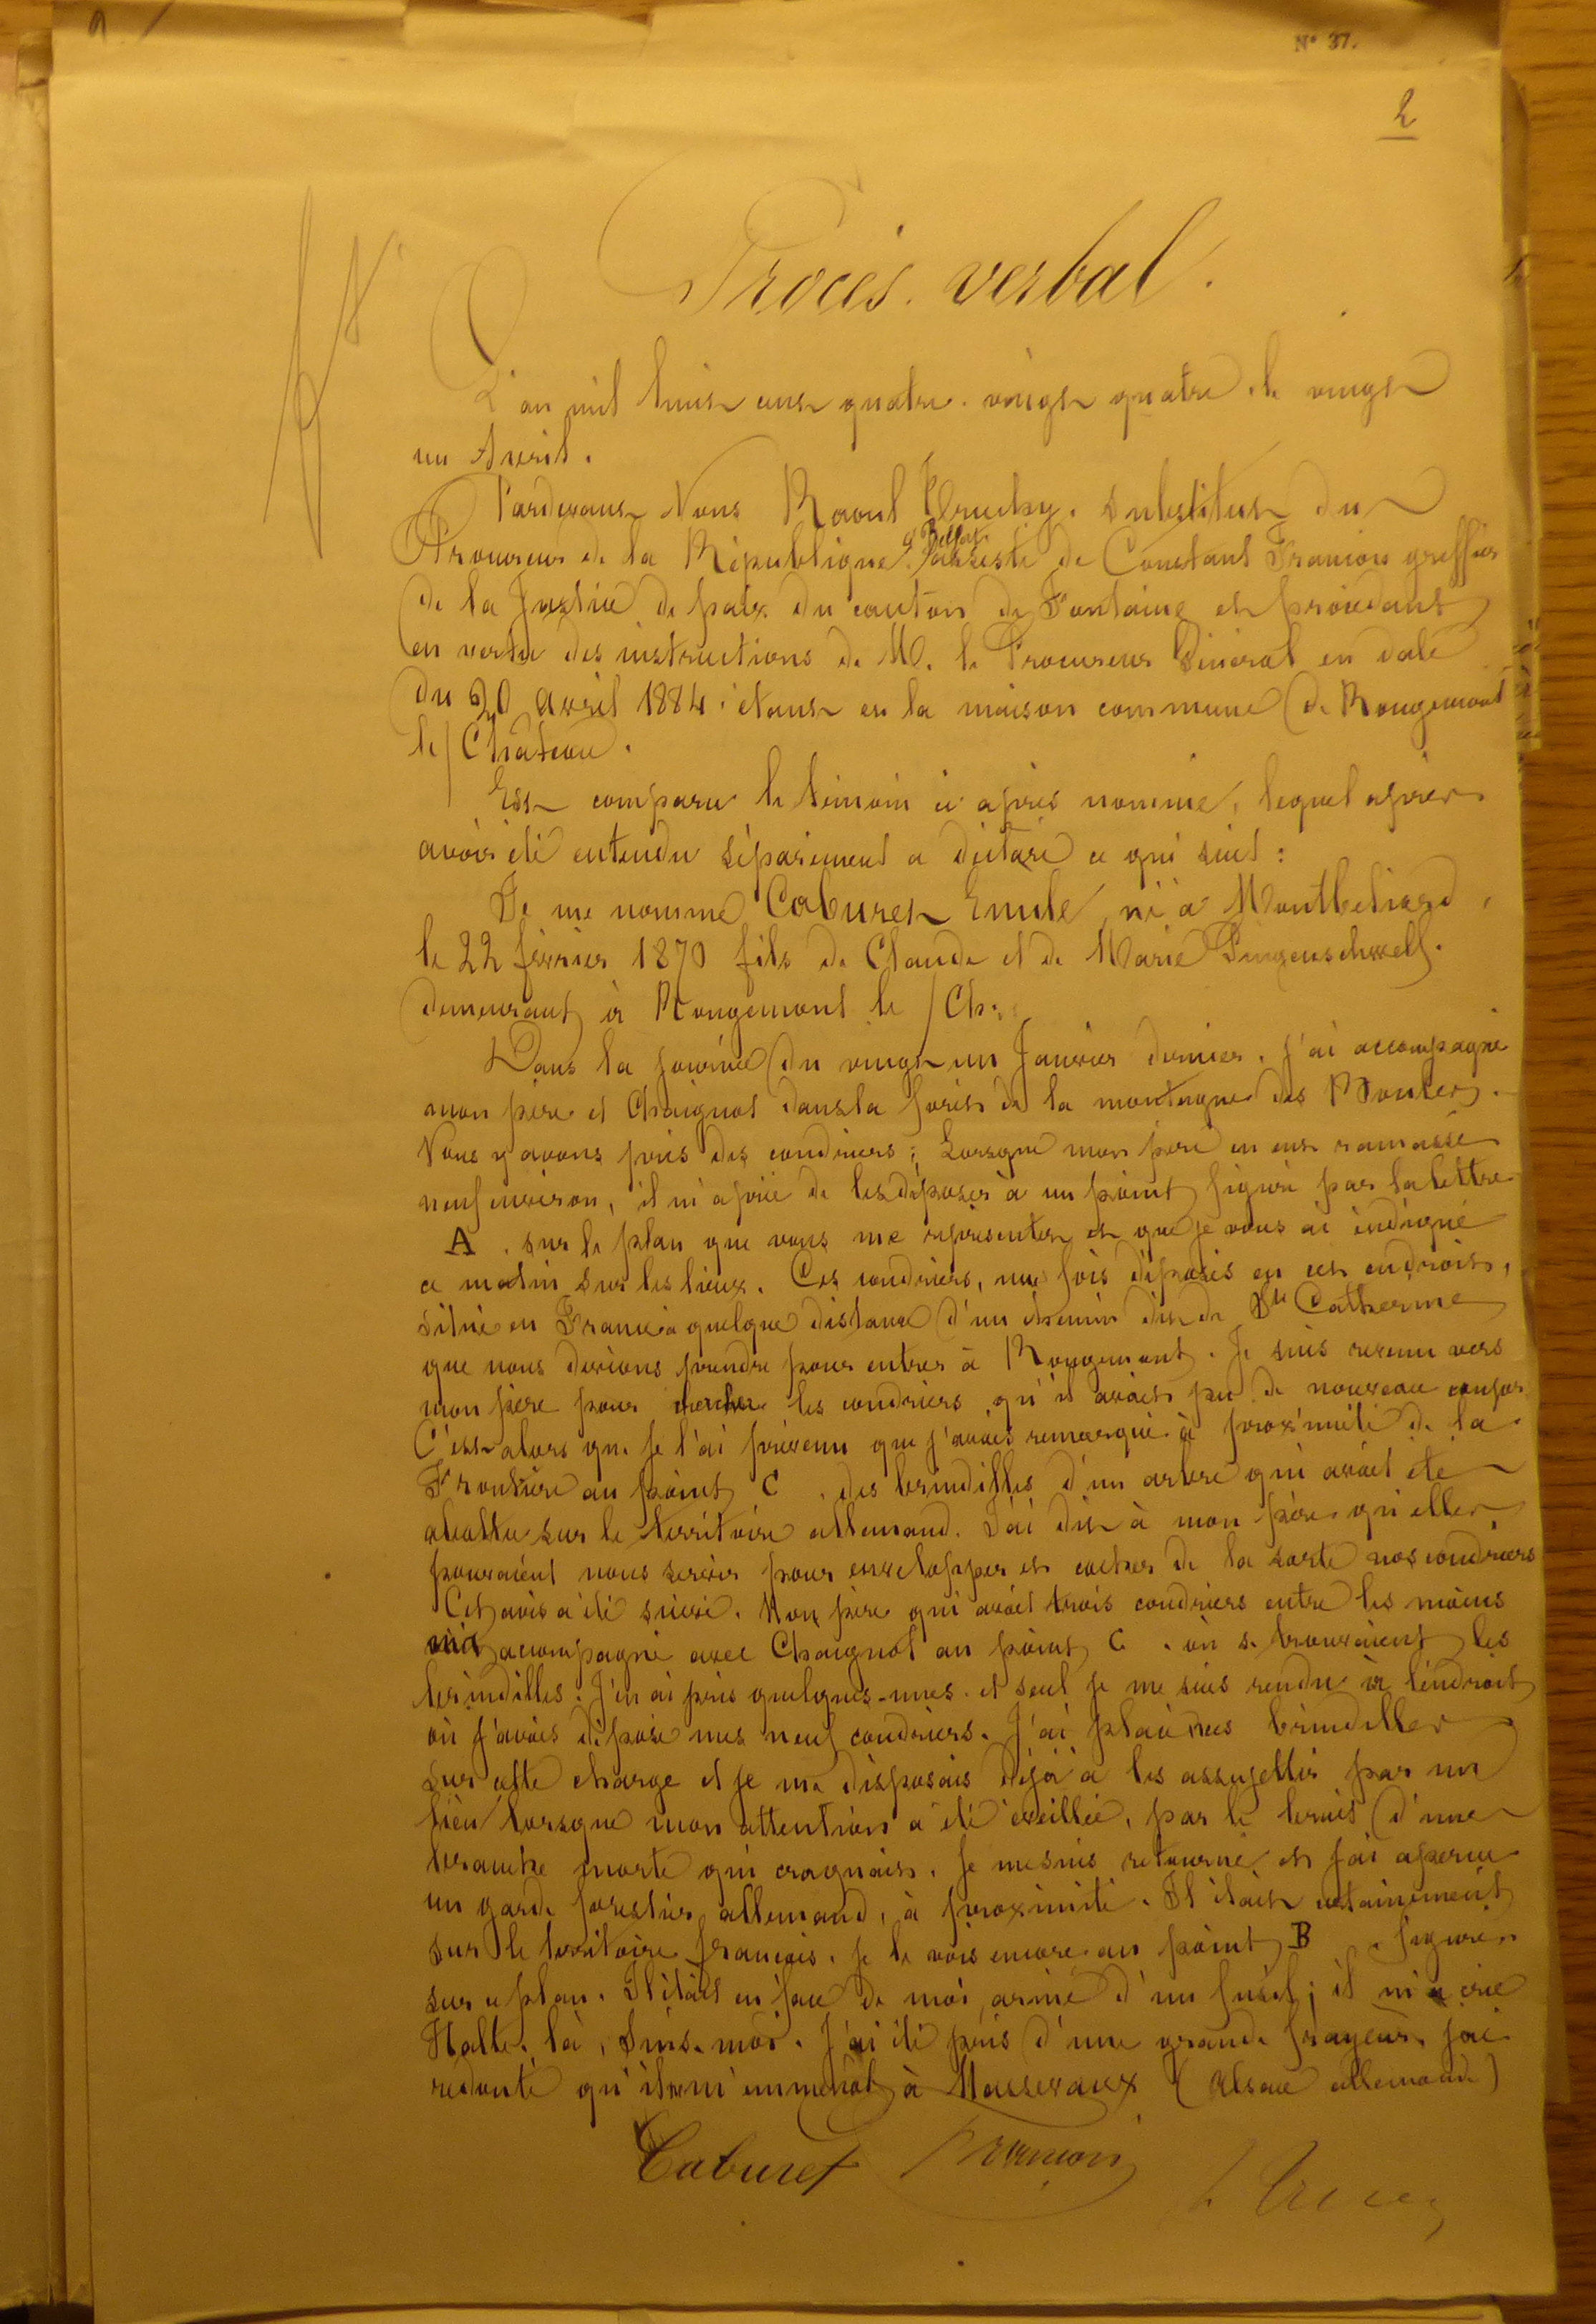 N° 37.
2
Procès-verbal.
L'an mil huit cent quatre-vingt quatre, le vingt
un Avril.
Pardevant Nous Raoul substitut du
Procureur de la République à Belfort assisté de Constant François greffier
de la Justice de paix du canton de Fontaine et procédant
en vertu des instructions de M. le Procureur Général en date
du 20 avril 1884, étant en la maison commune de Rougemont
le Château.
Est comparu le témoin ci après nommé, lequel après
avoir été entendu séparément a déclaré ce qui suit :
Je me nomme Caburet Emile, né à Montbéliard,
le 22 février 1870 fils de Claude et de Marie
demeurant à Rougemont le Ch.
Dans la journée du vingt un Janvier dernier, j'ai accompagné
mon père et Chaignot dans la forêt de la montagne des
Nous y avons pris des coudriers ; Lorsque mon père en eut ramassé
neuf environ, il m'a prié de les déposer à un point figuré par la lettre
A, sur le plan que vous me représentez et que je vous ai indiqué
ce matin sur les lieux. Ces coudriers, une fois déposés en cet endroit,
situé en France à quelque distance d'un chemin dit de Ste Catherine
que nous devions prendre pour entrer à Rougemont. Je suis revenu vers
mon père pour chercher les coudriers qu'il avait pu de nouveau couper
C'est alors que je l'ai prévenu que j'avais remarqué à proximité de la
Frontière au point C, des brindilles d'un arbre qui avait été
abattu sur le territoire allemand. J'ai dit à mon père qu'elles
pouvaient nous servir pour envelopper et cacher de la sorte nos coudriers
Cet avis a été suivi. Mon père qui avait trois coudriers entre les mains
m'a accompagné avec Chaignot au point C, où se trouvaient les
brindilles. J'en ai pris quelques-unes et seul je me suis rendu à l'endroit
où j'avais déposé mes neuf coudriers. J'ai placé mes brindilles
sur cette charge et je me disposais déjà à les assujettir par un
lien lorsque mon attention a été éveillée, par le bruit d'une
branche morte qui craquait. Je me suis retourné et j'ai aperçu
un garde forestier allemand, à proximité. Il était certainement
sur le territoire français. Je le vois encore au point B, figuré
sur ce plan. Il était en face de moi, armé d'un fusil ; il m'a crié
Halte-là, suis-moi. J'ai été pris d'une grande frayeur, j'ai
redouté qu'il m'emmenât à Massevaux (Alsace allemande)
Caburet François